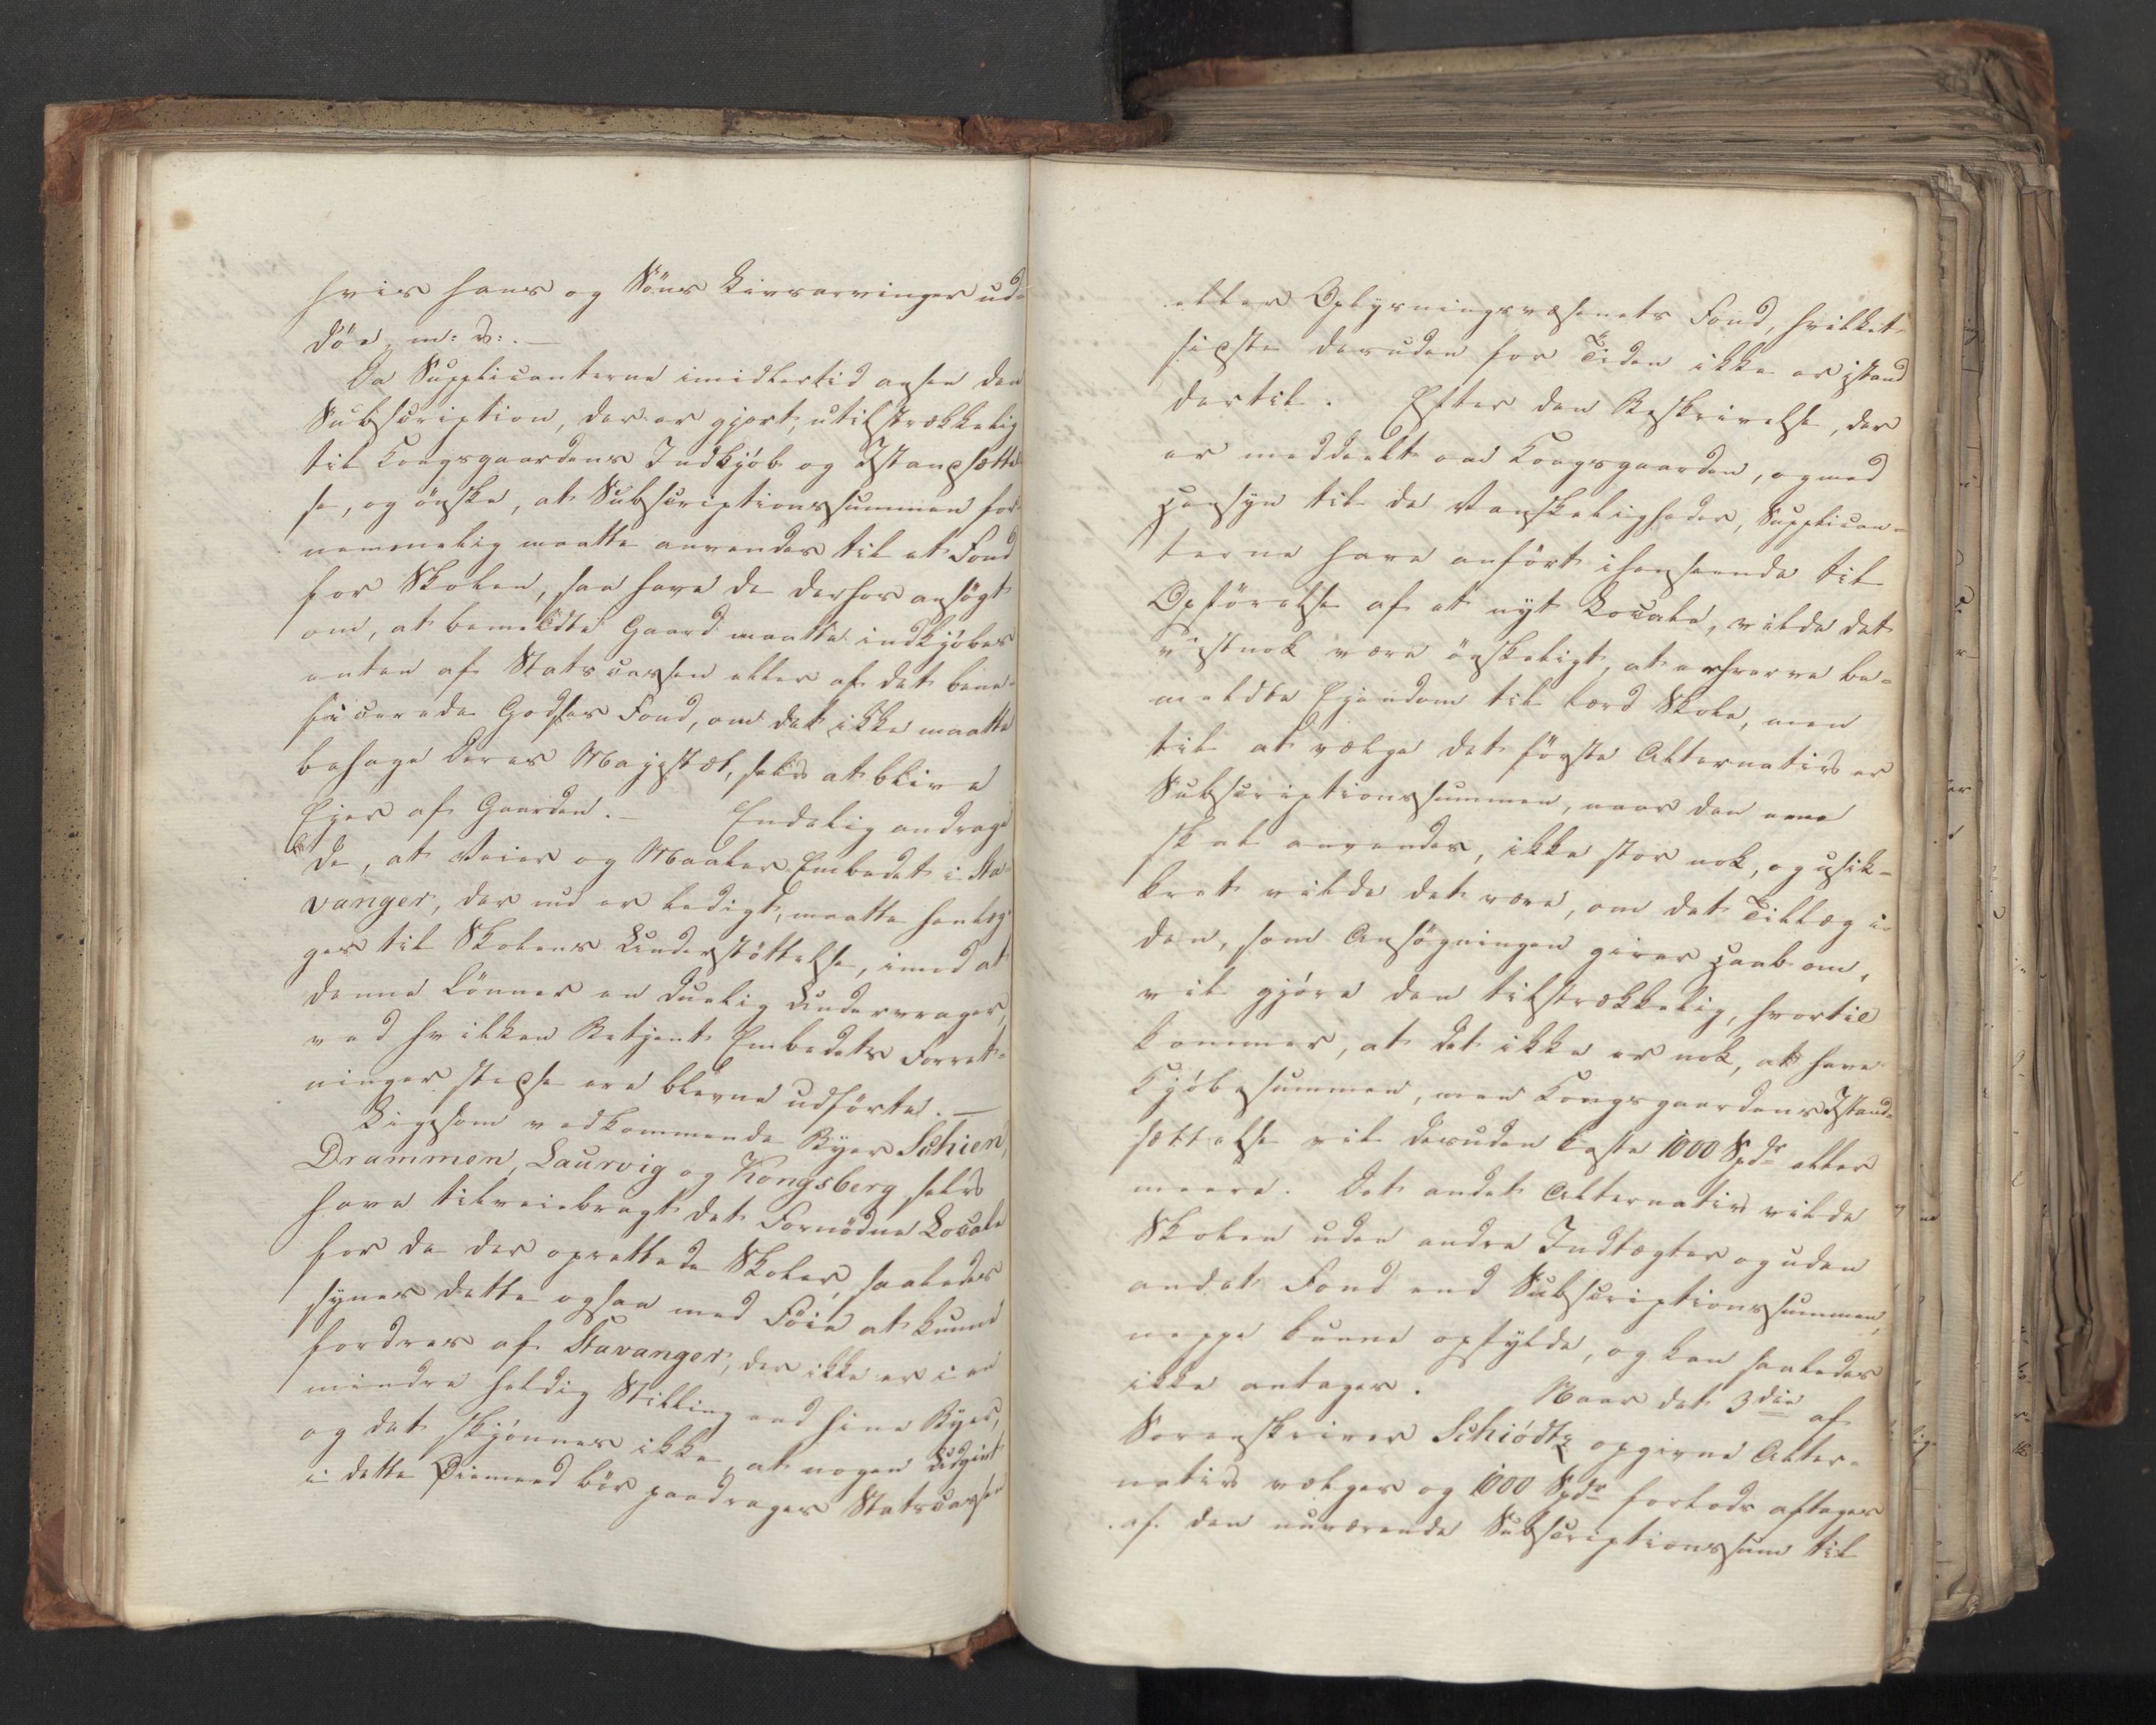 hvis hans og Söns Livsarvinger ud-
döe, m: v: . —
Da Supplicanterne imidlertid ansee den
Subscription, der er gjort, utilstrækkelig
til Kongsgaardens Indkjöb og Istandsættel-
se, og önske, at Subscriptionssummen for-
nemmelig maatte anvendes til et Fond
for Skolen, saa have de derhos ansögt
om, at bemeldte Gaard maatte indkjöbes
enten af Statscassen eller af det bene-
ficerede Godses Fond, om det ikke maatte
behage Deres Majestæt, selv at blive
Ejer af Gaarden. — Endelig andrage
de, at Veier og Maaler Embedet i Sta-
vanger, der nu er ledigt, maatte henlæg-
ges til Skolens Understöttelse, imod at
denne lönner en duelig Underveager,
ved hvilken Betjent Embedets Forret-
ninger stedse ere blevne udförte. —
Ligesom vedkommende Byer Schien,
Drammen, Laurvig og Kongsberg selv
have tilveiebragt det Fornödne Locale
for de der oprettede Skoler, saaledes
synes dette ogsaa med Föie at kunne
fordres af Stavanger, der ikke er i en
mindre heldig Stilling end hine Byer,
og det skjönnes ikke, at nogen Udgivt
i dette Öiemed bör paadrages Statscassen
eller Oplysningsvæsenets Fond, hvilket
sidste desuden for Tiden ikke er istand
dertil. Efter den Beskrivelse, der
er meddeelt om Kongsgaarden, og med
Hensyn til de Vanskeligheder, Supplican-
terne have anfört ihenseende til
Opförelse af et nyt Locale, vilde det
vistnok være önskeligt, at erhverve be-
meldte Ejendom til lærd Skole, men
til at vælge det förste Alternativ er
Subscriptionssummen, naar den ene
skal anvendes, ikke stor nok, og usik-
kert vilde det være, om det Tillæg i
den, som Ansögningen giver Haab om,
vil gjöre den tilstrækkelig, hvortil
kommer, at det ikke er nok, at have
Kjöbesummen, men Kongsgaardens Istand-
sættelse vil desuden koste 1000 Spdr eller
meere. Det andet Alternativ vilde
Skolen uden andre Indtægter og uden
andet Fond end Subscriptionssummen,
neppe kunne opfylde, og kan saaledes
ikke antages. Naar det 3die af
Sorenskriver Schiödtz opgivne Alter-
nativ vælges og 1000 Spdr forlods aftages
af den nuværende Subscriptionssum til